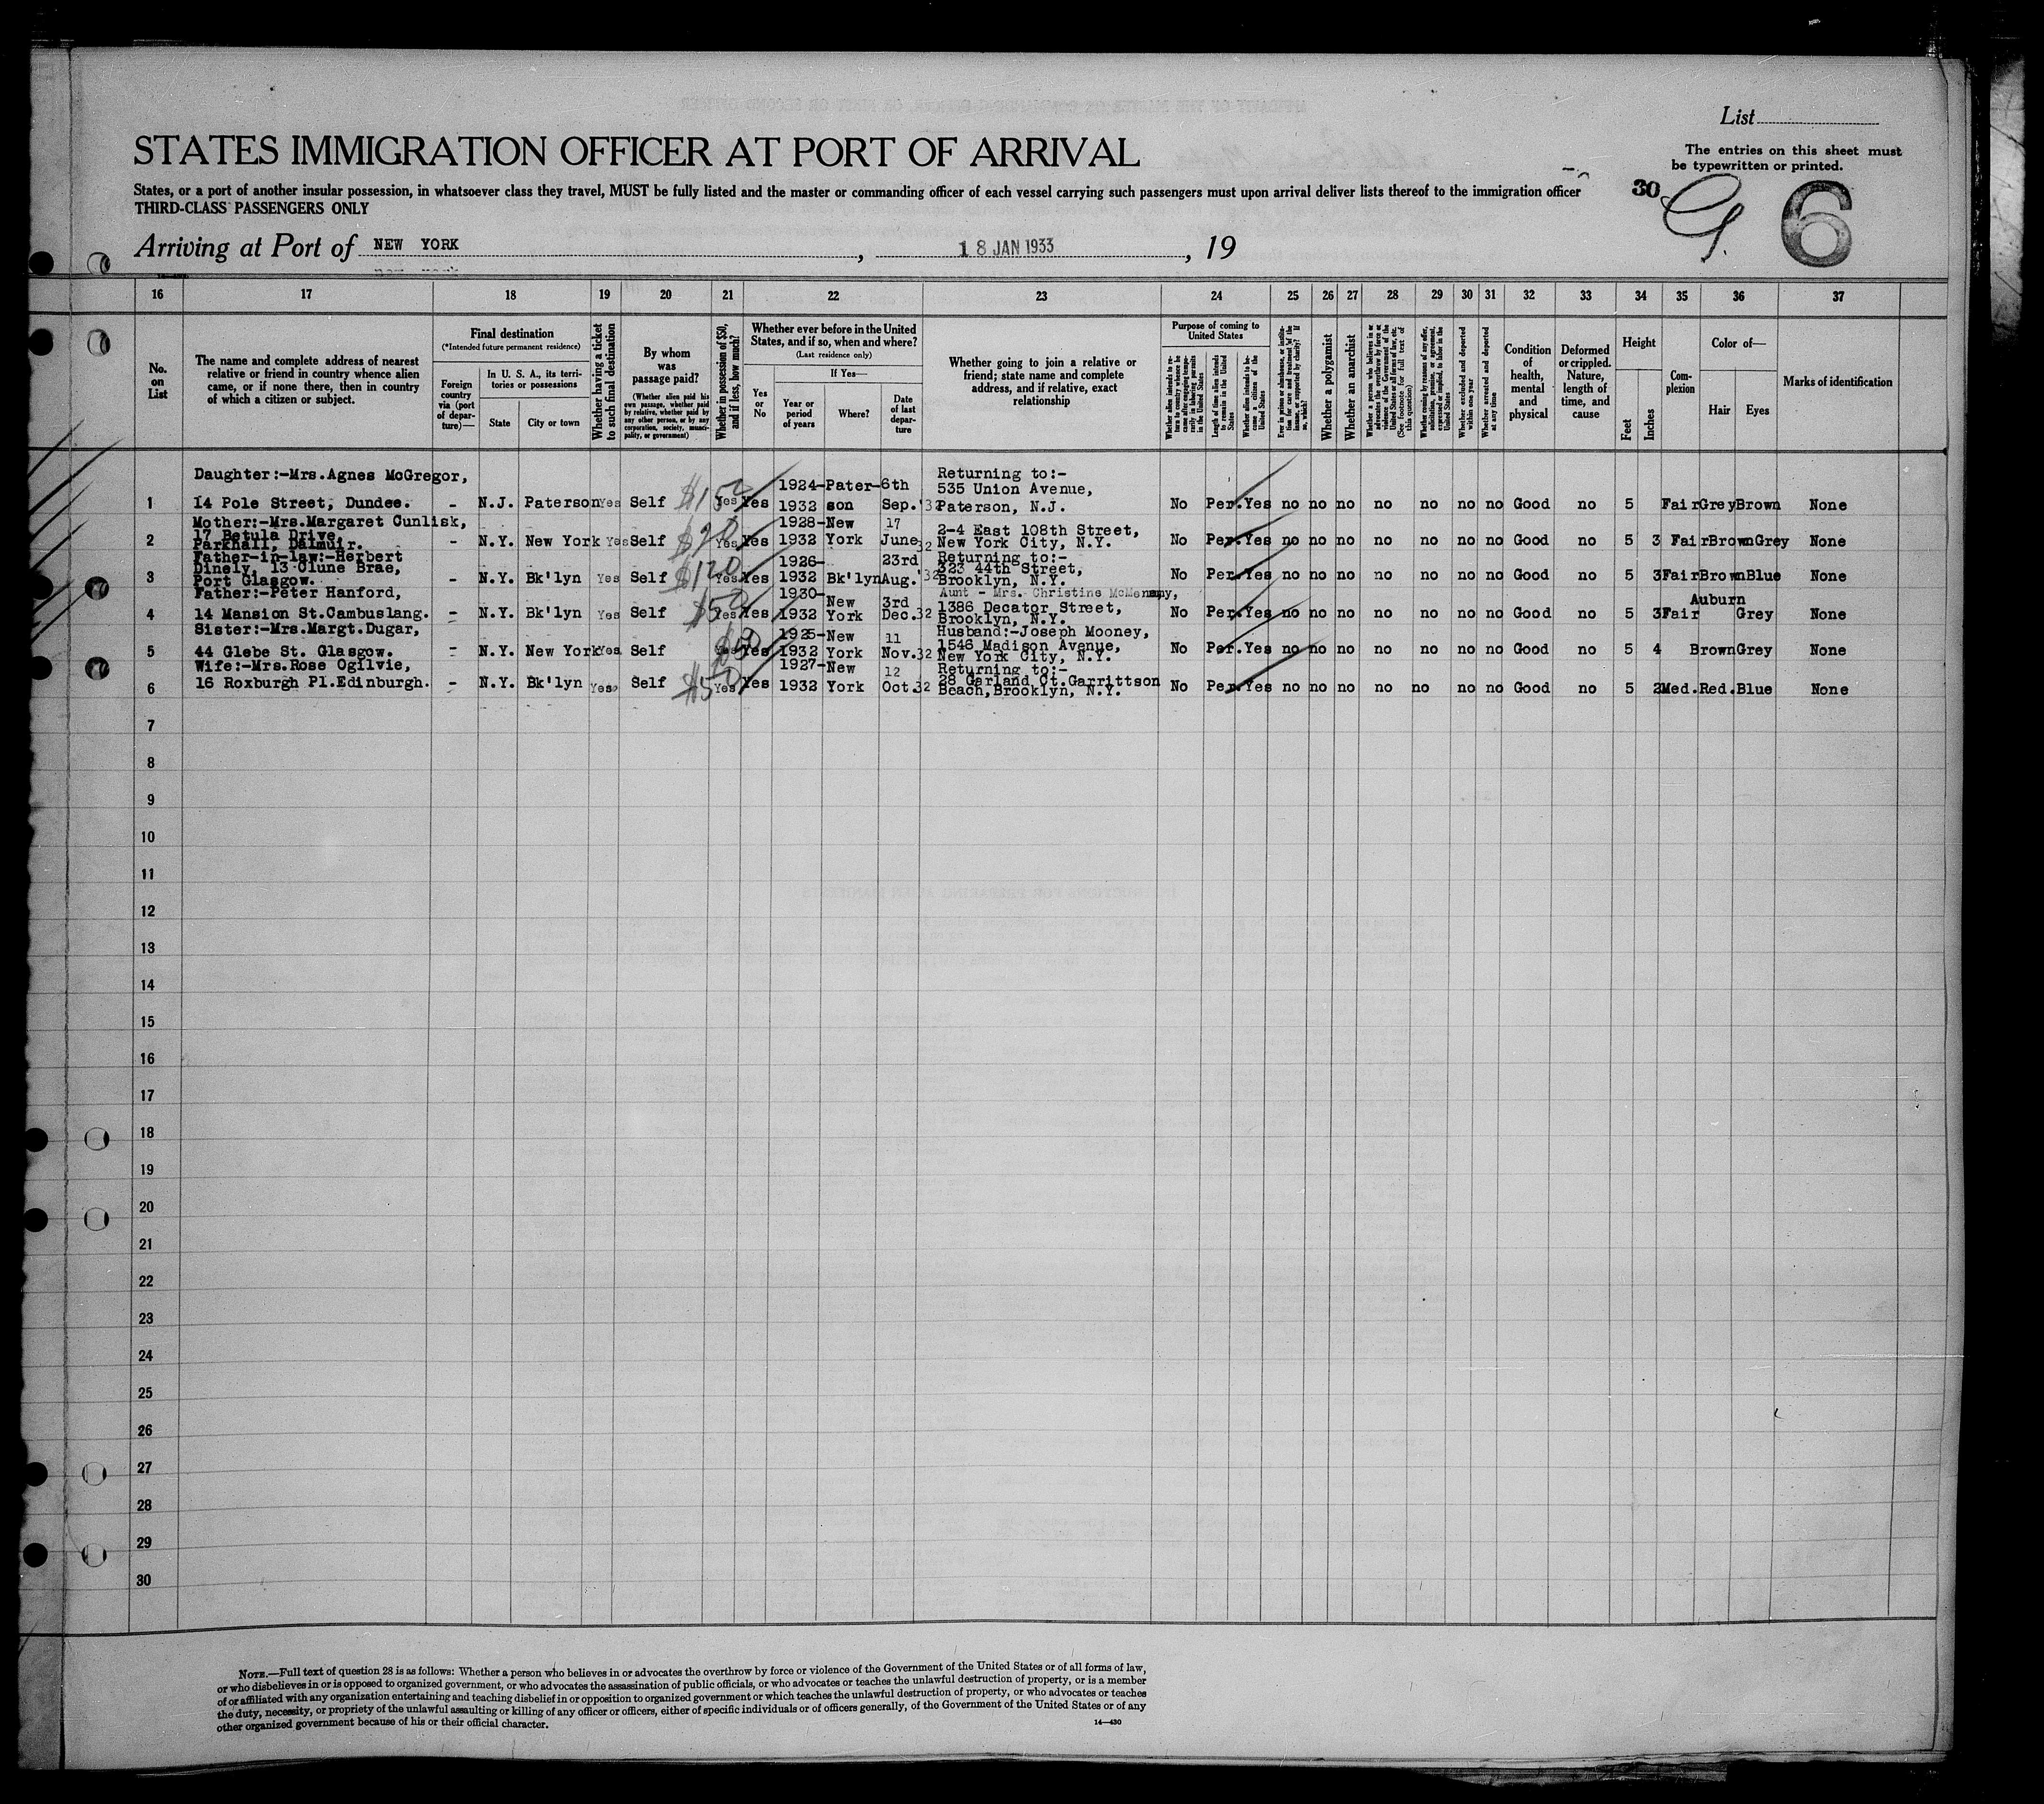 List
The entries on this sheet must
be typewritten or printed.
STATES IMMIGRATION OFFICER AT PORT OF ARRIVAL
States, or a port of another insular possession, in whatsoever class they travel, MUST be fully listed and the master or commanding officer of each vessel carrying such passengers must upon arrival deliver lists thereof to the immigration officer
THIRD-CLASS PASSENGERS ONLY
30 6
Arriving at Port of NEW YORK, 18 JAN 1933, 19
16 17 18 19 20 21 22 23 24 25 26 27 28 29 30 31 32 33 34 35 36 37
No. on List
The name and complete address of nearest relative or friend in country whence alien came, or if none there, then in country of which a citizen or subject.
Final destination
(*Intended future permanent residence)
Foreign country via (port of departure)—
In U. S. A., its territories or possessions
State
City or town
Whether having a ticket to such final destination
By whom was passage paid?
(Whether alien paid his own passage, whether paid by relative, whether paid by any other person, or by any corporation, society, municipality, or government)
Whether in possession of $50, and if less, how much?
Whether ever before in the United States, and if so, when and where?
(Last residence only)
Yes or No
If Yes—
Year or period of years
Where?
Date of last departure
Whether going to join a relative or friend; state name and complete address, and if relative, exact relationship
Purpose of coming to United States
Whether alien intends to return to country whence he came after engaging temporarily in laboring pursuits in the United States
Length of time alien intends to remain in the United States
Whether alien intends to become a citizen of the United States
Ever in prison or almshouse, or institution for care and treatment of the insane, or supported by charity? If so, which?
Whether a polygamist
Whether an anarchist
Whether a person who believes in or advocates the overthrow by force or violence of the Government of the United States or all forms of law, etc. (See footnote for full text of this question)
Whether coming by reasons of any offer, solicitation, promise, or agreement, expressed or implied, to labor in the United States
Whether excluded and deported within one year
Whether arrested and deported at any time
Condition of health, mental and physical
Deformed or crippled. Nature, length of time, and cause
Height
Feet
Inches
Complexion
Color of—
Hair
Eyes
Marks of identification
Daughter:-Mrs.Agnes McGregor, Returning to:-
1924-Pater-6th 535 Union Avenue,
1 14 Pole Street, Dundee. - N.J. Paterson Yes Self $152 Yes Yes 1932 son Sep.'32 Paterson, N.J. No Per. Yes no no no no no no no Good no 5 Fair Grey Brown None
Mother:-Mrs.Margaret Cunlisk, 1928-New 17
17 Betula Drive, 2-4 East 108th Street,
2 Parkhall, Dalmuir. - N.Y. New York Yes Self Yes Yes 1932 York June 32 New York City, N.Y. No Per. Yes no no no no no no no Good no 5 3 Fair Brown Grey None
Father-in-law:-Herbert 1926- 23rd Returning to:-
Dinely, 13 Clune Brae, 323 44th Street,
3 Port Glasgow. - N.Y. Bk'lyn Yes Self $120 Yes Yes 1932 Bk'lyn Aug.'32 Brooklyn, N.Y. No Per. Yes no no no no no no no Good no 5 3 Fair Brown Blue None
Father:-Peter Hanford, 1930- New 3rd Aunt - Mrs. Christine McMenamy, Auburn
1386 Decator Street,
4 14 Mansion St.Cambuslang. - N.Y. Bk'lyn Yes Self $50 Yes Yes 1932 York Dec.32 Brooklyn, N.Y. No Per. Yes no no no no no no no Good no 5 3 Fair Grey None
Sister:-Mrs.Margt.Dugar, 1925-New 11 Husband:-Joseph Mooney,
1546 Madison Avenue,
5 44 Glebe St. Glasgow. - N.Y. New York Yes Self Yes Yes 1932 York Nov.32 New York City, N.Y. No Per. Yes no no no no no no no Good no 5 4 Brown Grey None
Wife:-Mrs.Rose Ogilvie, 1927-New 12 Returning to:-
28 Garland Ct.Garrittson
6 16 Roxburgh Pl.Edinburgh. - N.Y. Bk'lyn Yes Self $50 Yes Yes 1932 York Oct.32 Beach,Brooklyn, N.Y. No Per. Yes no no no no no no no Good no 5 2 Med. Red. Blue None
7
8
9
10
11
12
13
14
15
16
17
18
19
20
21
22
23
24
25
26
27
28
29
30
NOTE.—Full text of question 28 is as follows: Whether a person who believes in or advocates the overthrow by force or violence of the Government of the United States or of all forms of law,
or who disbelieves in or is opposed to organized government, or who advocates the assassination of public officials, or who advocates or teaches the unlawful destruction of property, or is a member
of or affiliated with any organization entertaining and teaching disbelief in or opposition to organized government or which teaches the unlawful destruction of property, or who advocates or teaches
the duty, necessity, or propriety of the unlawful assaulting or killing of any officer or officers, either of specific individuals or of officers generally, of the Government of the United States or of any
other organized government because of his or their official character.
14—430